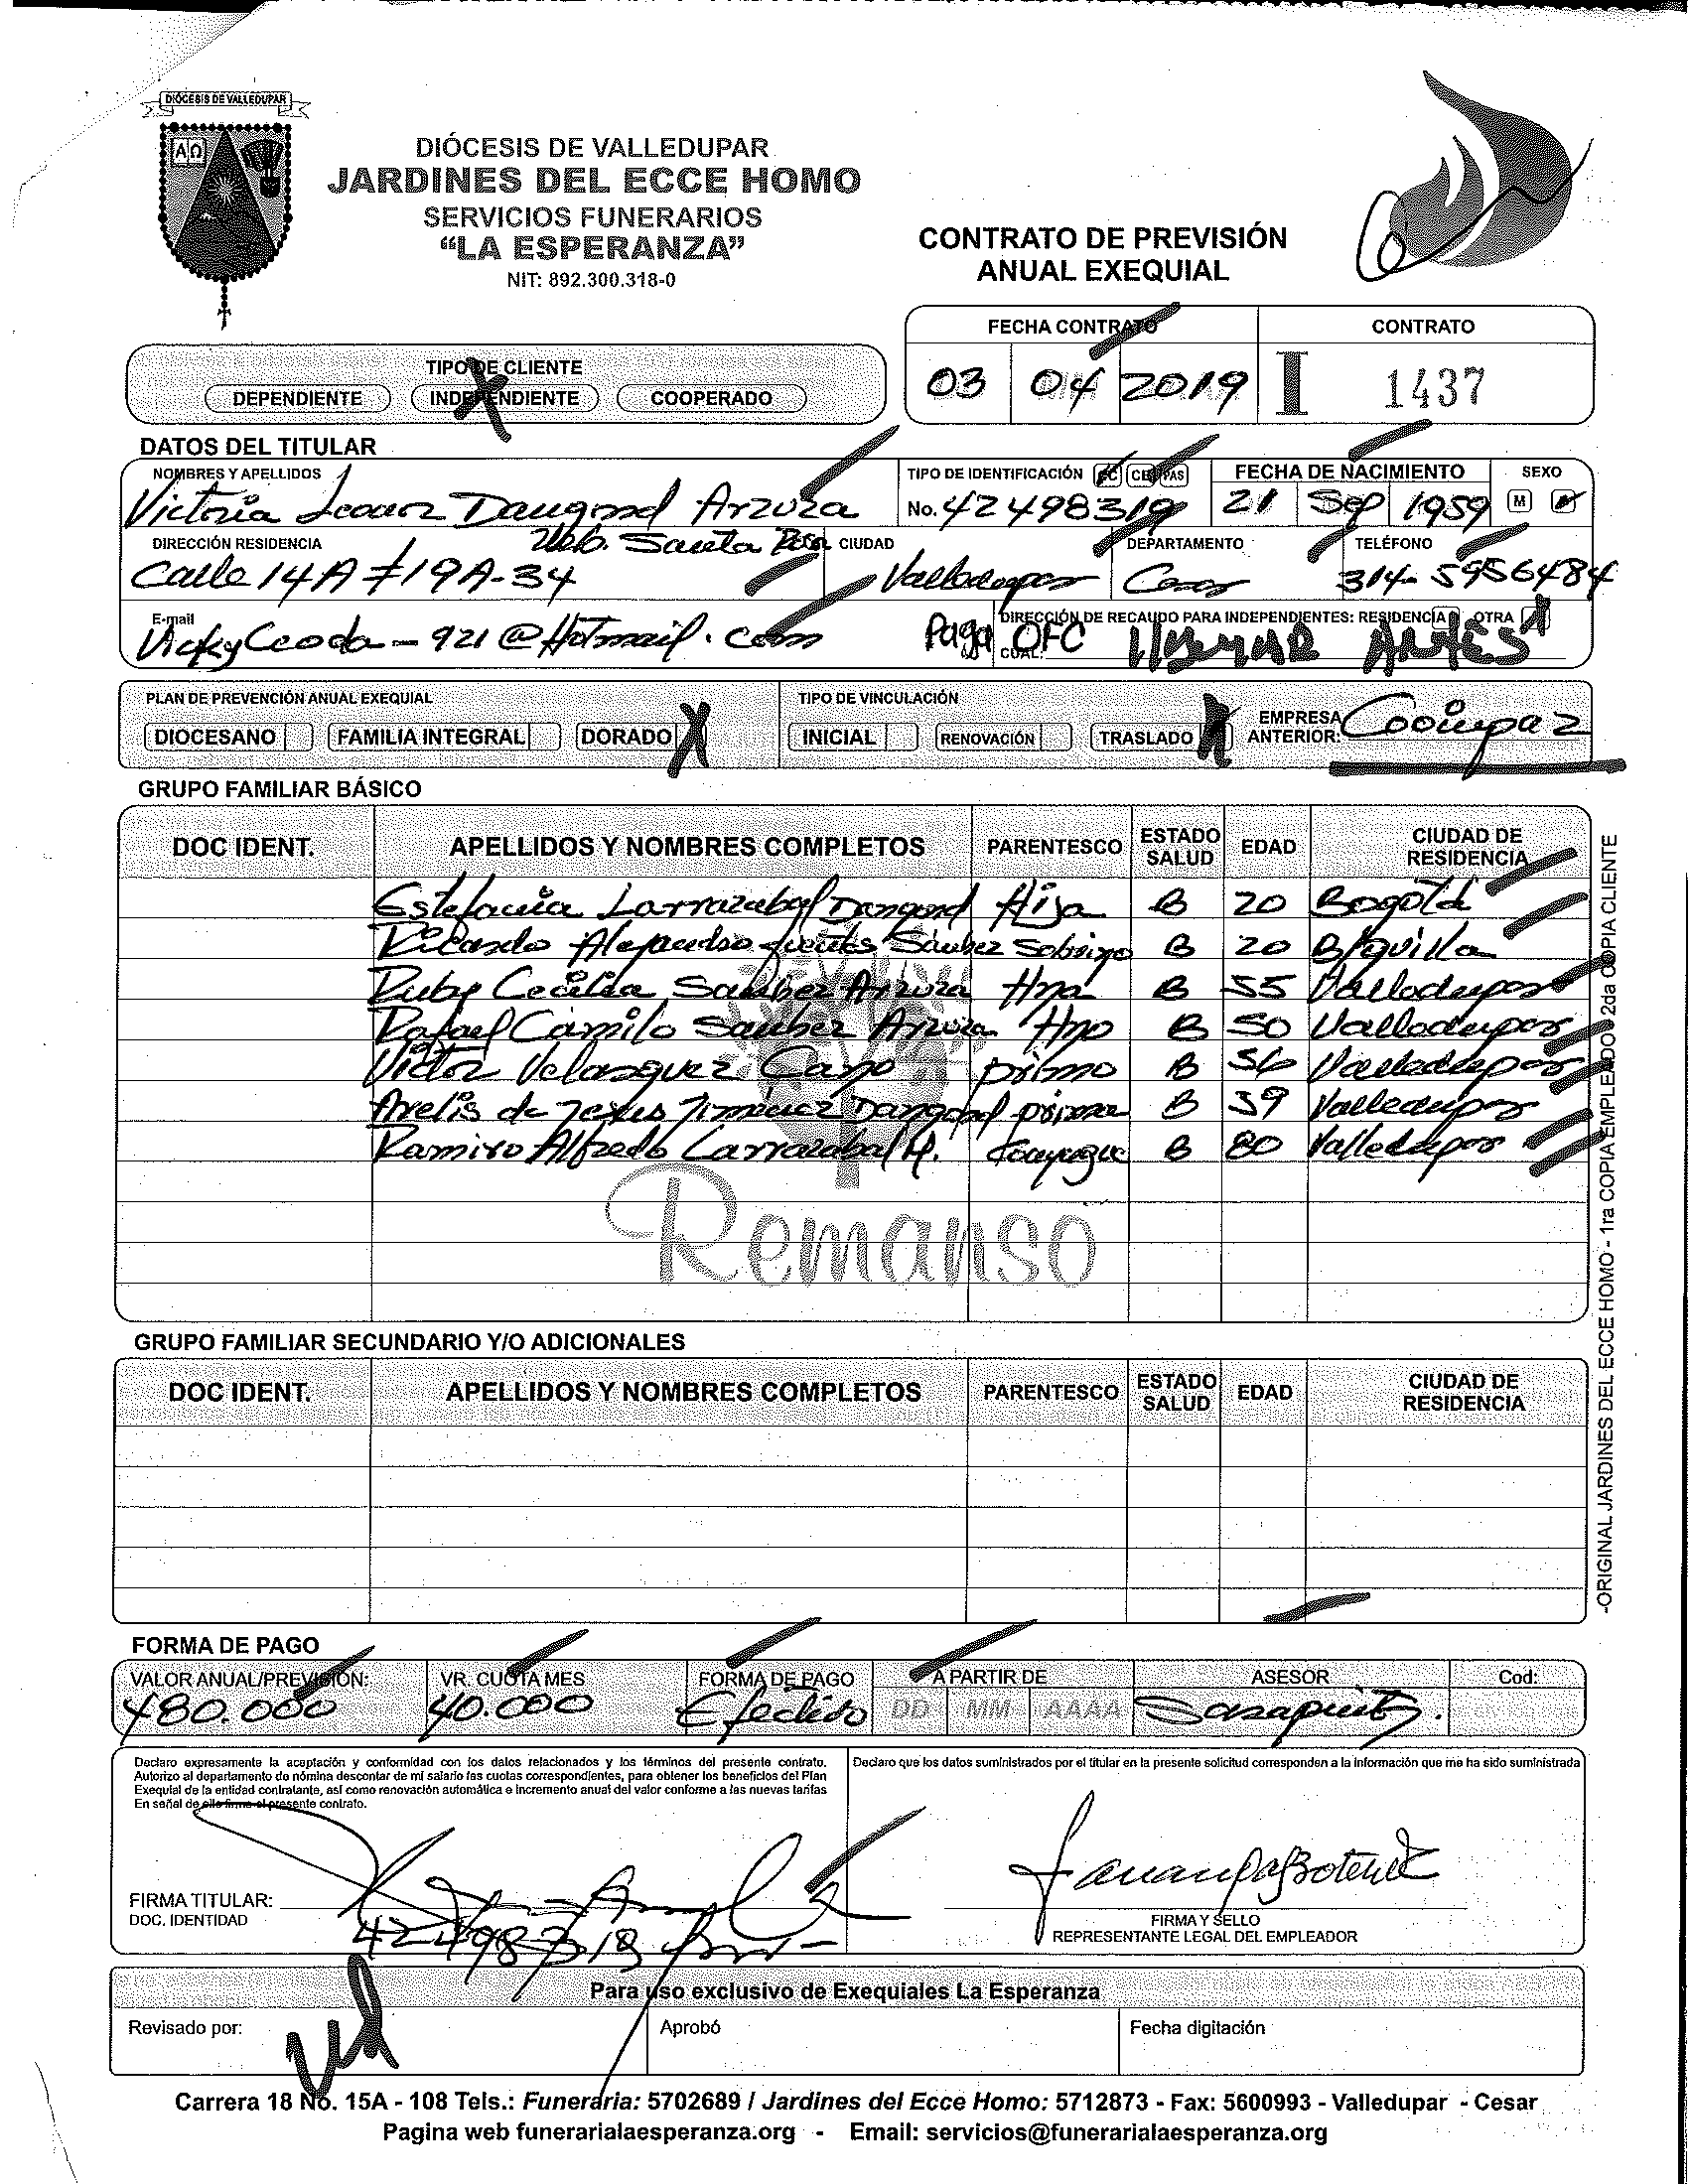 DIÓCESIS DE VALLEDUPAR
ΑΩ
DIÓCESIS DE VALLEDUPAR
JARDINES DEL ECCE HOMO
SERVICIOS FUNERARIOS
“LA ESPERANZA”
NIT: 892.300.318-0
CONTRATO DE PREVISIÓN
ANUAL EXEQUIAL
FECHA CONTRATO CONTRATO
03 04 2019 I 1437
TIPO DE CLIENTE
DEPENDIENTE INDEPENDIENTE X COOPERADO
DATOS DEL TITULAR
NOMBRES Y APELLIDOS TIPO DE IDENTIFICACIÓN CC CE PAS FECHA DE NACIMIENTO SEXO
Victoria Dangond Arzuza No. 42498319 21 Sep 1959 M
DIRECCIÓN RESIDENCIA Urb. Santa Rosa CIUDAD DEPARTAMENTO TELÉFONO
Calle 14A #19A-34 Valledupar Cesar 314-5956484
E-mail DIRECCIÓN DE RECAUDO PARA INDEPENDIENTES: RESIDENCIA OTRA
@Hotmail.com Paga OFC CUAL: ANTES
PLAN DE PREVENCIÓN ANUAL EXEQUIAL TIPO DE VINCULACIÓN
DIOCESANO FAMILIA INTEGRAL DORADO X INICIAL RENOVACIÓN TRASLADO X EMPRESA ANTERIOR: Cooinpaz
GRUPO FAMILIAR BÁSICO
DOC IDENT. APELLIDOS Y NOMBRES COMPLETOS PARENTESCO ESTADO SALUD EDAD CIUDAD DE RESIDENCIA
Estefania Larrazabal Dangond Hija B 20 Bogotá
Ricardo Alejandro Fuentes Sanchez Sobrino B 20 B/quilla
Ruby Cecilia Sanchez Arzuza Hna B 55 Valledupar
Rafael Camilo Sanchez Arzuza Hno B 50 Valledupar
Victor Velasquez Cano primo B 56 Valledupar
Arelis de Jesus Jimenez Dangond prima B 39 Valledupar
Ramiro Alfredo Larrazabal M. B 80 Valledupar
Remanso
GRUPO FAMILIAR SECUNDARIO Y/O ADICIONALES
DOC IDENT. APELLIDOS Y NOMBRES COMPLETOS PARENTESCO ESTADO SALUD EDAD CIUDAD DE RESIDENCIA
-ORIGINAL JARDINES DEL ECCE HOMO - 1ra COPIA EMPLEADO - 2da COPIA CLIENTE
FORMA DE PAGO
VALOR ANUAL/PREVISIÓN: VR. CUOTA MES FORMA DE PAGO A PARTIR DE ASESOR Cod:
480.000 40.000 Efectivo DD MM AAAA
Declaro expresamente la aceptación y conformidad con los datos relacionados y los términos del presente contrato.
Autorizo al departamento de nómina descontar de mi salario las cuotas correspondientes, para obtener los beneficios del Plan
Exequial de la entidad contratante, así como renovación automática e incremento anual del valor conforme a las nuevas tarifas
En señal de ello firmo el presente contrato.
Declaro que los datos suministrados por el titular en la presente solicitud corresponden a la información que me ha sido suministrada
FIRMA TITULAR:
DOC. IDENTIDAD 42498319
FIRMA Y SELLO
REPRESENTANTE LEGAL DEL EMPLEADOR
Para uso exclusivo de Exequiales La Esperanza
Revisado por: Aprobó Fecha digitación
Carrera 18 No. 15A - 108 Tels.: Funeraria: 5702689 / Jardines del Ecce Homo: 5712873 - Fax: 5600993 - Valledupar - Cesar
Pagina web funerarialaesperanza.org - Email: servicios@funerarialaesperanza.org